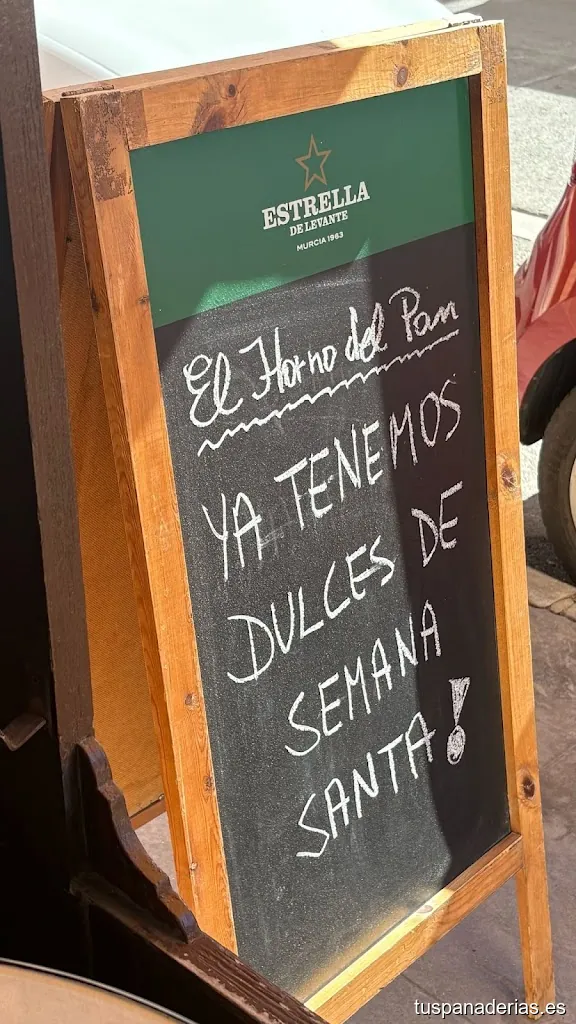 ESTRELLA
DE LEVANTE
MURCIA 1963
El Horno del Pan
YA TENEMOS
DULCES DE
SEMANA
SANTA!
tuspanaderias.es